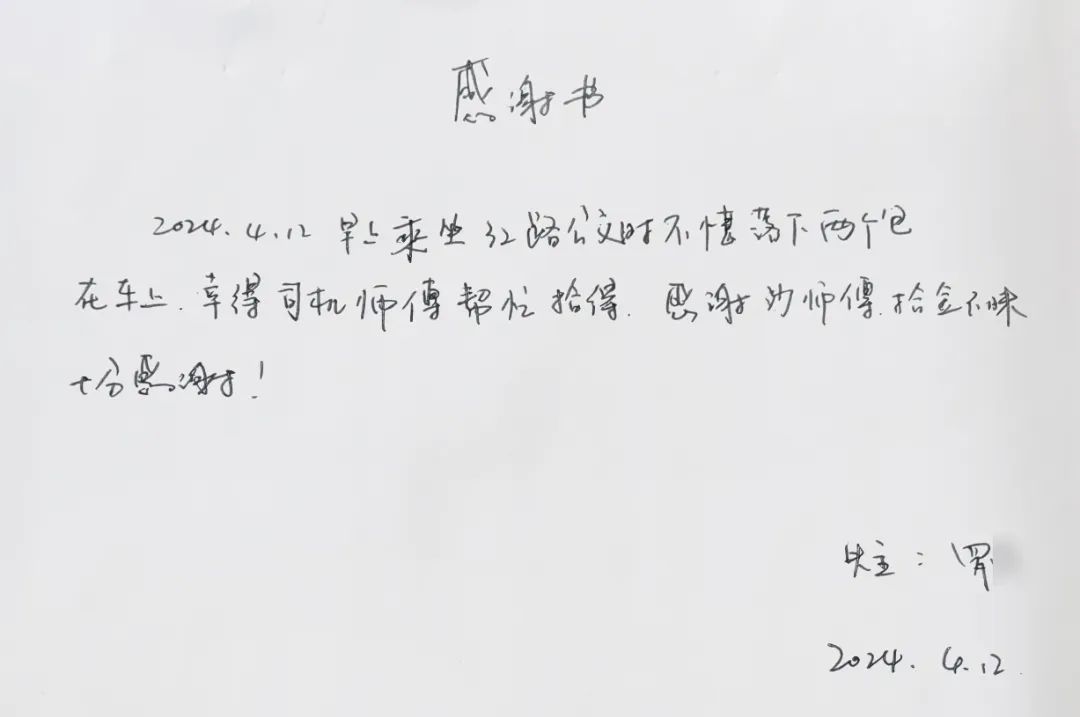 感谢书
2024.4.12 早上乘坐32路公交时不慎落下两个包
在车上.幸得司机师傅帮忙拾得.感谢沙师傅.拾金不昧
十分感谢!
失主:罗
2024.4.12